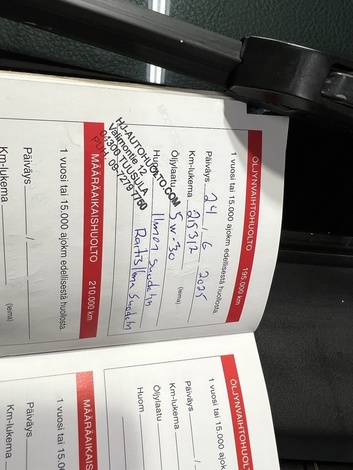 ÖLJYNVAIHTOHUOLTO 195.000 km
1 vuosi tai 15.000 ajokm edellisestä huollosta.
Päiväys 24 / 6 2025
Km-lukema 215312 (leima)
Öljylaatu 5W-30
Huom Ilman suodatin
Raitisilma Suodatin
HJ-AUTOHUOLTO.COM
Valimontie 12
04300 TUUSULA
PUH. 09-7279 7760
MÄÄRÄAIKAISHUOLTO 210.000 km
1 vuosi tai 15.000 ajokm edellisestä huollosta.
Päiväys / (leima)
Km-lukema
ÖLJYNVAIHTOHUOLTO
1 vuosi tai 15.000 ajokm
Päiväys /
Km-lukema
Öljylaatu
Huom
MÄÄRÄAIKAISHUOLTO
1 vuosi tai 15.0
Päiväys
Km-lukema